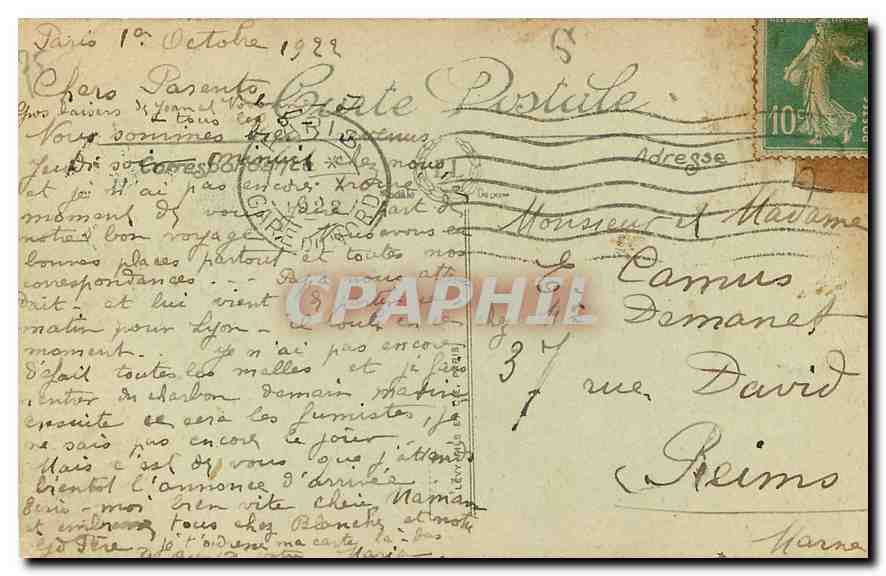 Paris 1er Octobre 1922
Carte Postale
Chers Parents
Gros baisers de Jean et
à tous les
Nous sommes bien revenus
Jeudi soir minuit chez nous
et je n'ai pas encore trouvé le
moment de vous faire part de
notre bon voyage. Nous avons eu
bonnes places partout et toutes nos
correspondances... Papa nous atten
dait - et lui vient de
matin pour Lyon -
moment.. Je n'ai pas encore
défait toutes les malles et je fais
rentrer du charbon demain matin
ensuite ce sera les fumistes, je
ne sais pas encore le jour
Mais c'est de vous que j'attends
bientôt l'annonce d'arrivée.
Ecris-moi bien vite chère Maman
et embrasse tous chez Blanche et notre
Gd Père j'adresse ma carte là-bas
Maria
Correspondance
Adresse
PARIS
GARE DU NORD
1922
10c
POSTES
CAPHIL
LEVY FILS ET CIE, PARIS
Monsieur et Madame
E. Camus
chez Me Demanet
37 rue David
Reims
Marne